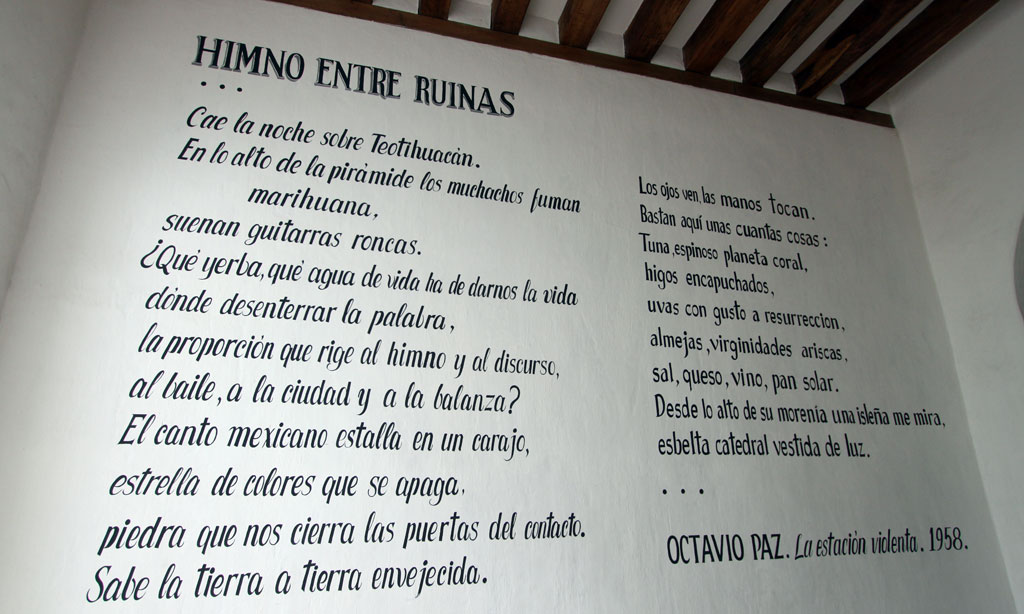 HIMNO ENTRE RUINAS
...
Cae la noche sobre Teotihuacán.
En lo alto de la pirámide los muchachos fuman
marihuana,
suenan guitarras roncas.
¿Qué yerba, qué agua de vida ha de darnos la vida
dónde desenterrar la palabra,
la proporción que rige al himno y al discurso,
al baile, a la ciudad y a la balanza?
El canto mexicano estalla en un carajo,
estrella de colores que se apaga,
piedra que nos cierra las puertas del contacto.
Sabe la tierra a tierra envejecida.
Los ojos ven, las manos tocan.
Bastan aquí unas cuantas cosas:
Tuna, espinoso planeta coral,
higos encapuchados,
uvas con gusto a resurreccion,
almejas, virginidades ariscas,
sal, queso, vino, pan solar.
Desde lo alto de su morenía una isleña me mira,
esbelta catedral vestida de luz.
...
OCTAVIO PAZ. La estación violenta. 1958.